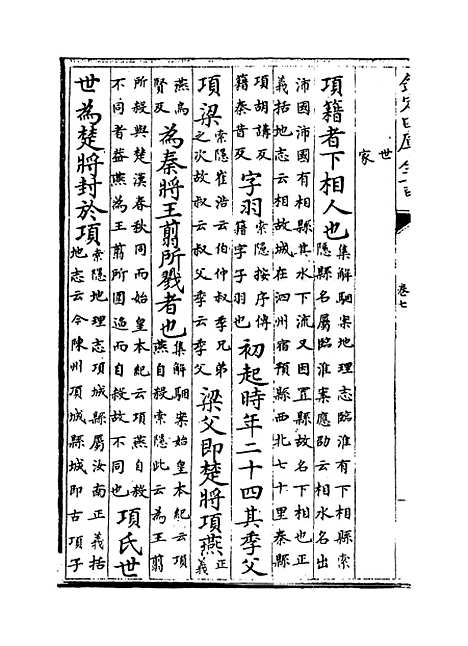 欽定四庫全書
卷七
世
家
項籍者下相人也集解駰案地理志臨淮有下相縣索隱縣名屬臨淮案應劭云相水名出
沛國沛國有相縣其水下流又因置縣故名下相也正義括地志云相故城在泗州宿預縣西北七十里秦縣
項胡講反籍秦昔反字羽索隱按序傳籍字子羽也初起時年二十四其季父
項梁索隱崔浩云伯仲叔季兄弟之次故叔云叔父季云季父梁父即楚將項燕正義
燕烏賢反為秦將王翦所戮者也集解駰案始皇本紀云項燕自殺索隱此云為王翦
所殺與楚漢春秋同而始皇本紀云項燕自殺不同者葢燕為王翦所圍逼而自殺故不同也項氏世
世為楚將封於項索隱地理志項城縣屬汝南正義括地志云今陳州項城縣城即古項子